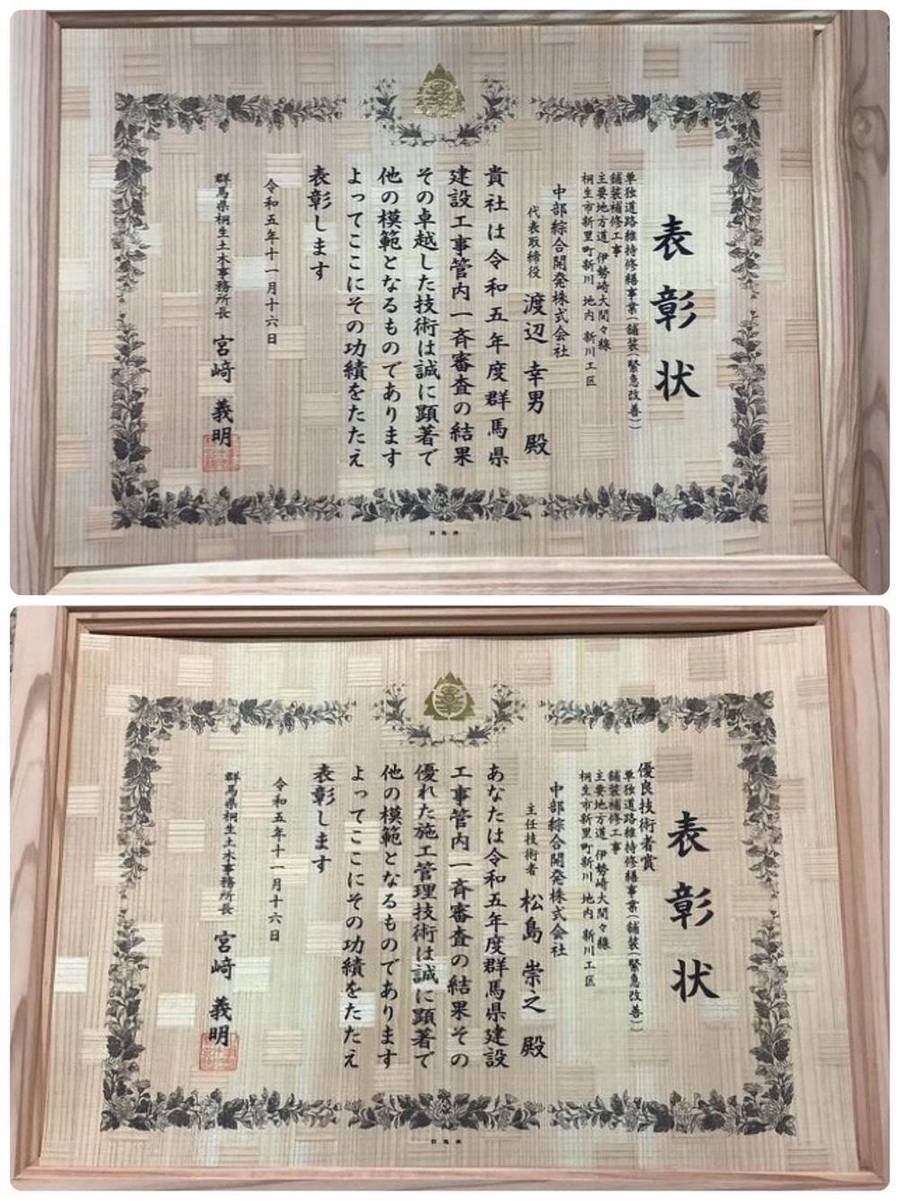 表彰状
単独道路維持修繕事業(舗装(緊急改善))
舗装補修工事
主要地方道 伊勢崎大間々線
桐生市新里町新川 地内 新川工区
中部綜合開発株式会社
代表取締役 渡辺 幸男 殿
貴社は令和五年度群馬県
建設工事管内一斉審査の結果
その卓越した技術は誠に顕著で
他の模範となるものであります
よってここにその功績をたたえ
表彰します
令和五年十一月十六日
群馬県桐生土木事務所長 宮﨑 義明
表彰状
優良技術者賞
単独道路維持修繕事業(舗装(緊急改善))
舗装補修工事
主要地方道 伊勢崎大間々線
桐生市新里町新川 地内 新川工区
中部綜合開発株式会社
主任技術者 松島 崇之 殿
あなたは令和五年度群馬県建設
工事管内一斉審査の結果その
優れた施工管理技術は誠に顕著で
他の模範となるものであります
よってここにその功績をたたえ
表彰します
令和五年十一月十六日
群馬県桐生土木事務所長 宮﨑 義明